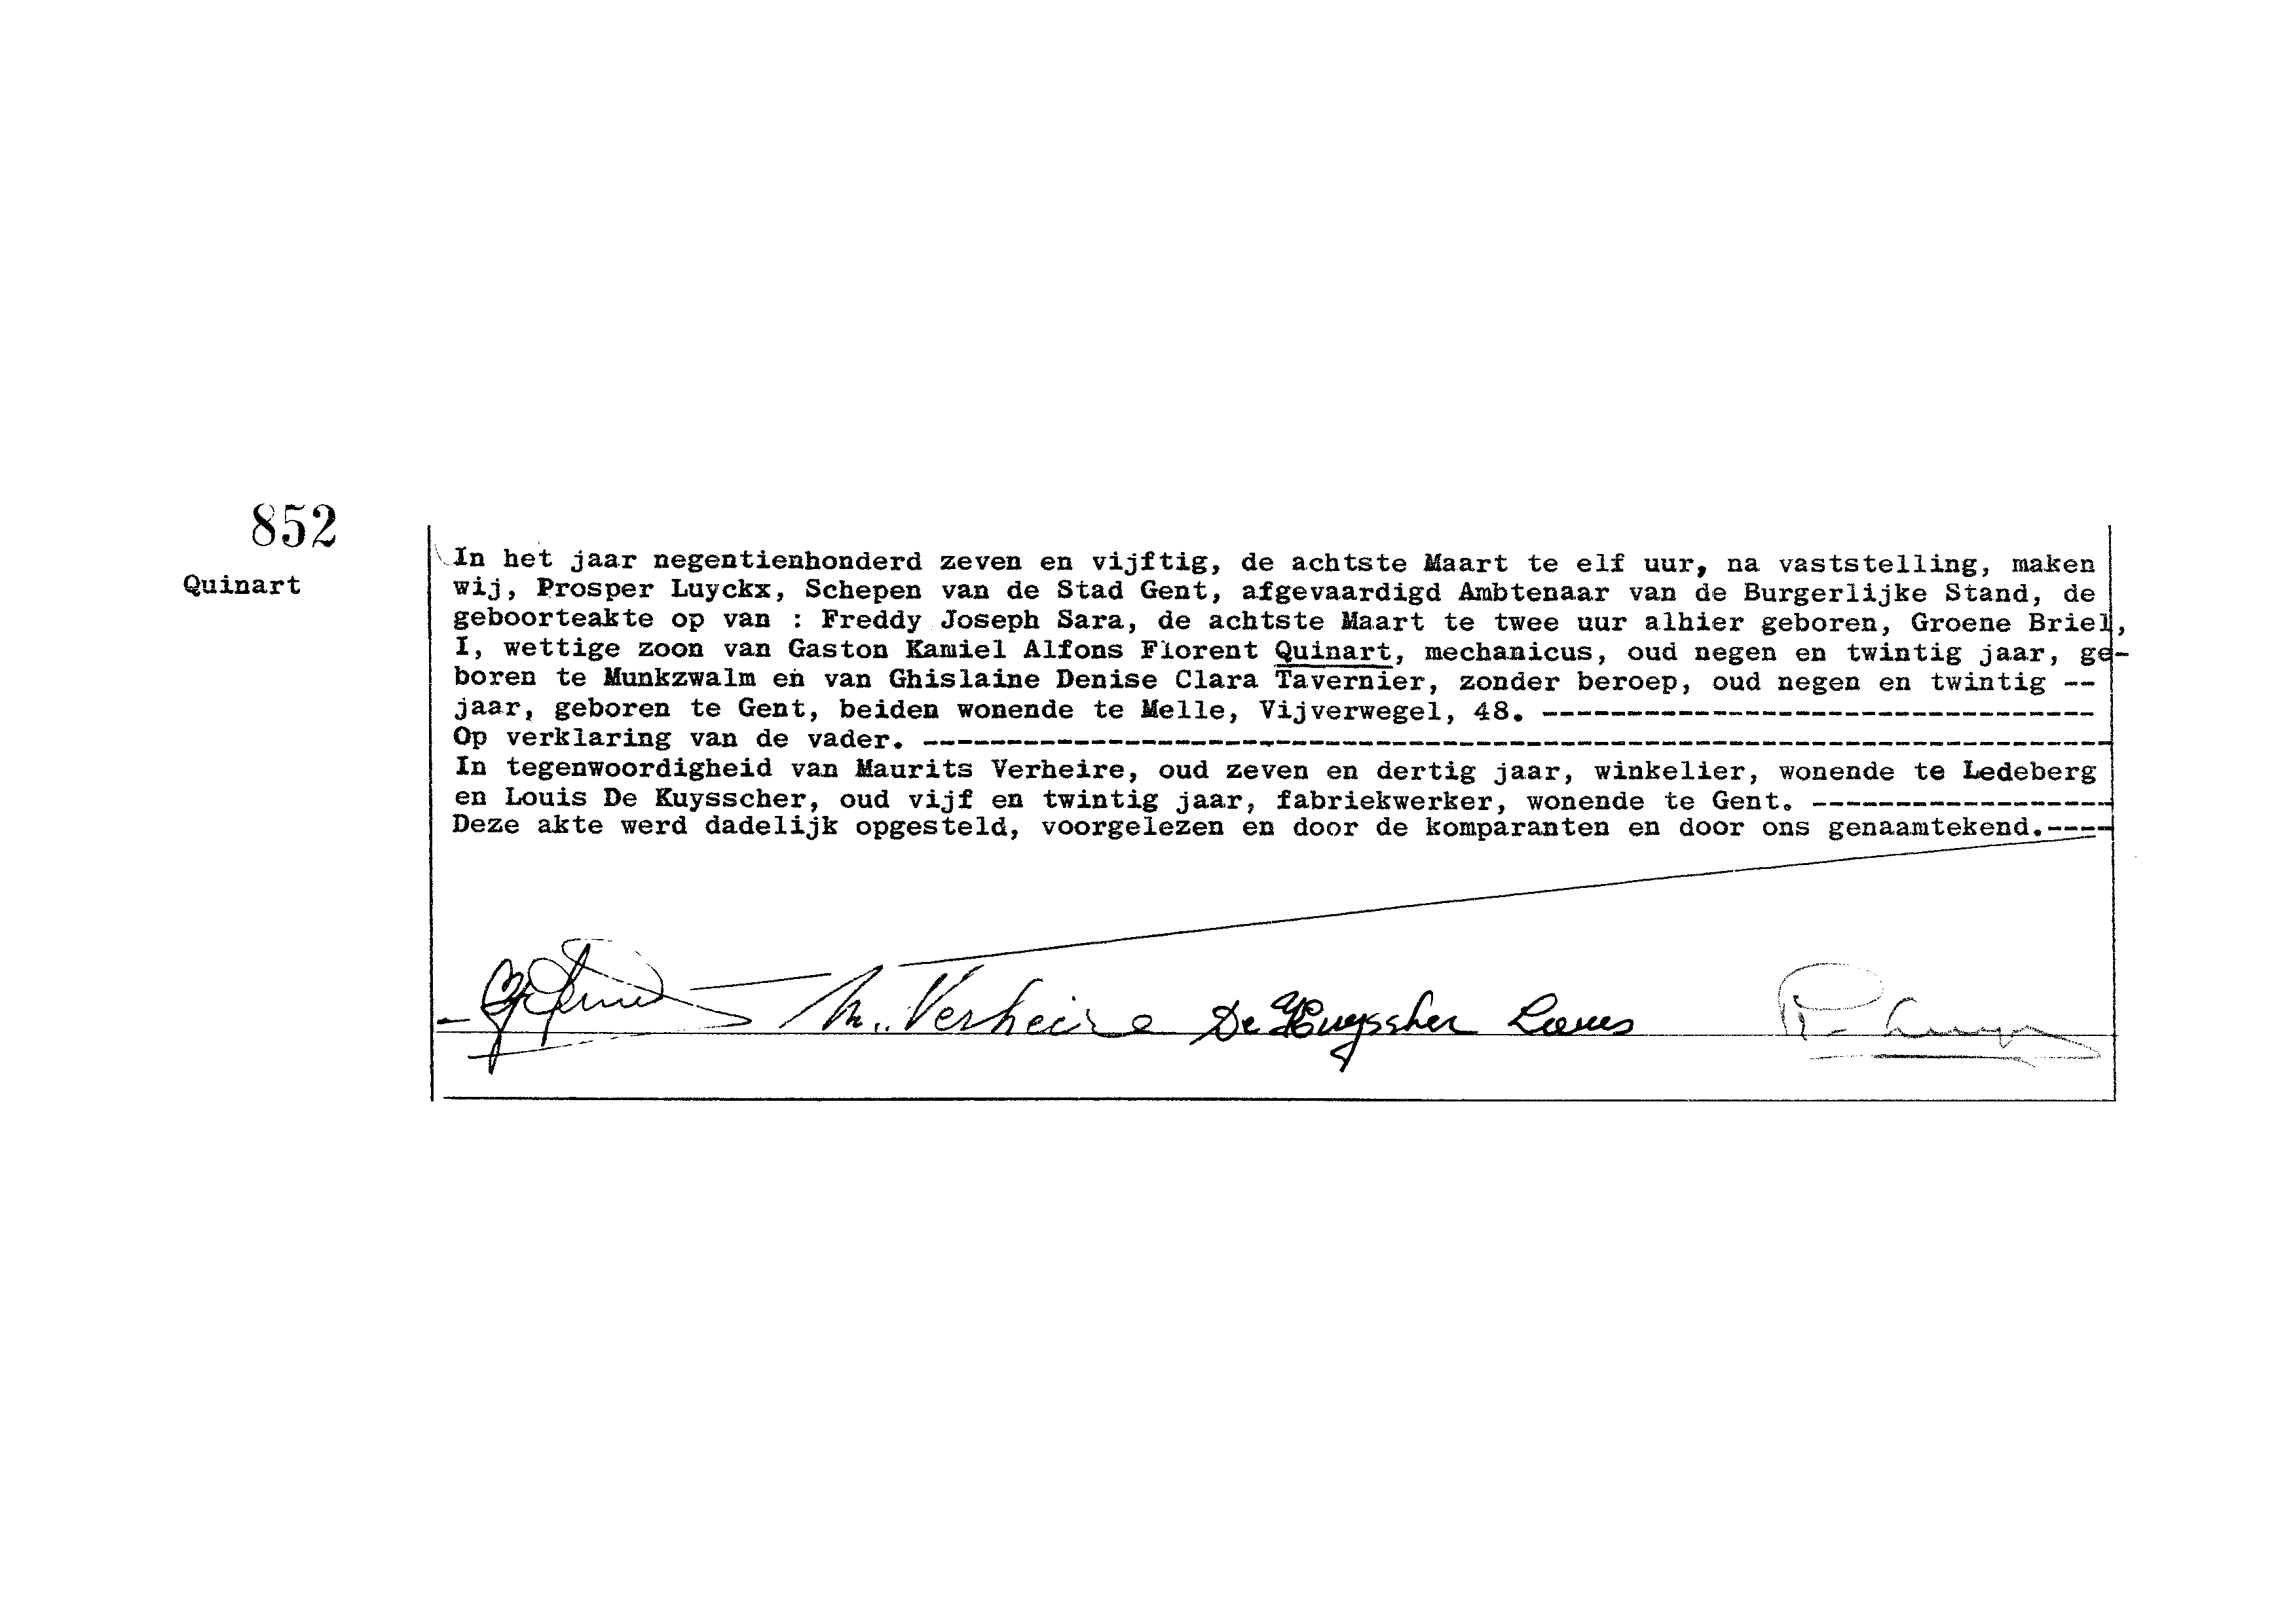 852
Quinart
In het jaar negentienhonderd zeven en vijftig, de achtste Maart te elf uur, na vaststelling, maken
wij, Prosper Luyckx, Schepen van de Stad Gent, afgevaardigd Ambtenaar van de Burgerlijke Stand, de
geboorteakte op van : Freddy Joseph Sara, de achtste Maart te twee uur alhier geboren, Groene Briel,
I, wettige zoon van Gaston Kamiel Alfons Florent Quinart, mechanicus, oud negen en twintig jaar, ge-
boren te Munkzwalm en van Ghislaine Denise Clara Tavernier, zonder beroep, oud negen en twintig --
jaar, geboren te Gent, beiden wonende te Melle, Vijverwegel, 48. ---------------------------------
Op verklaring van de vader. -----------------------------------------------------------------------
In tegenwoordigheid van Maurits Verheire, oud zeven en dertig jaar, winkelier, wonende te Ledeberg
en Louis De Kuysscher, oud vijf en twintig jaar, fabriekwerker, wonende te Gent. ------------------
Deze akte werd dadelijk opgesteld, voorgelezen en door de komparanten en door ons genaamtekend.----
M. Verheire De Kuysscher Louis